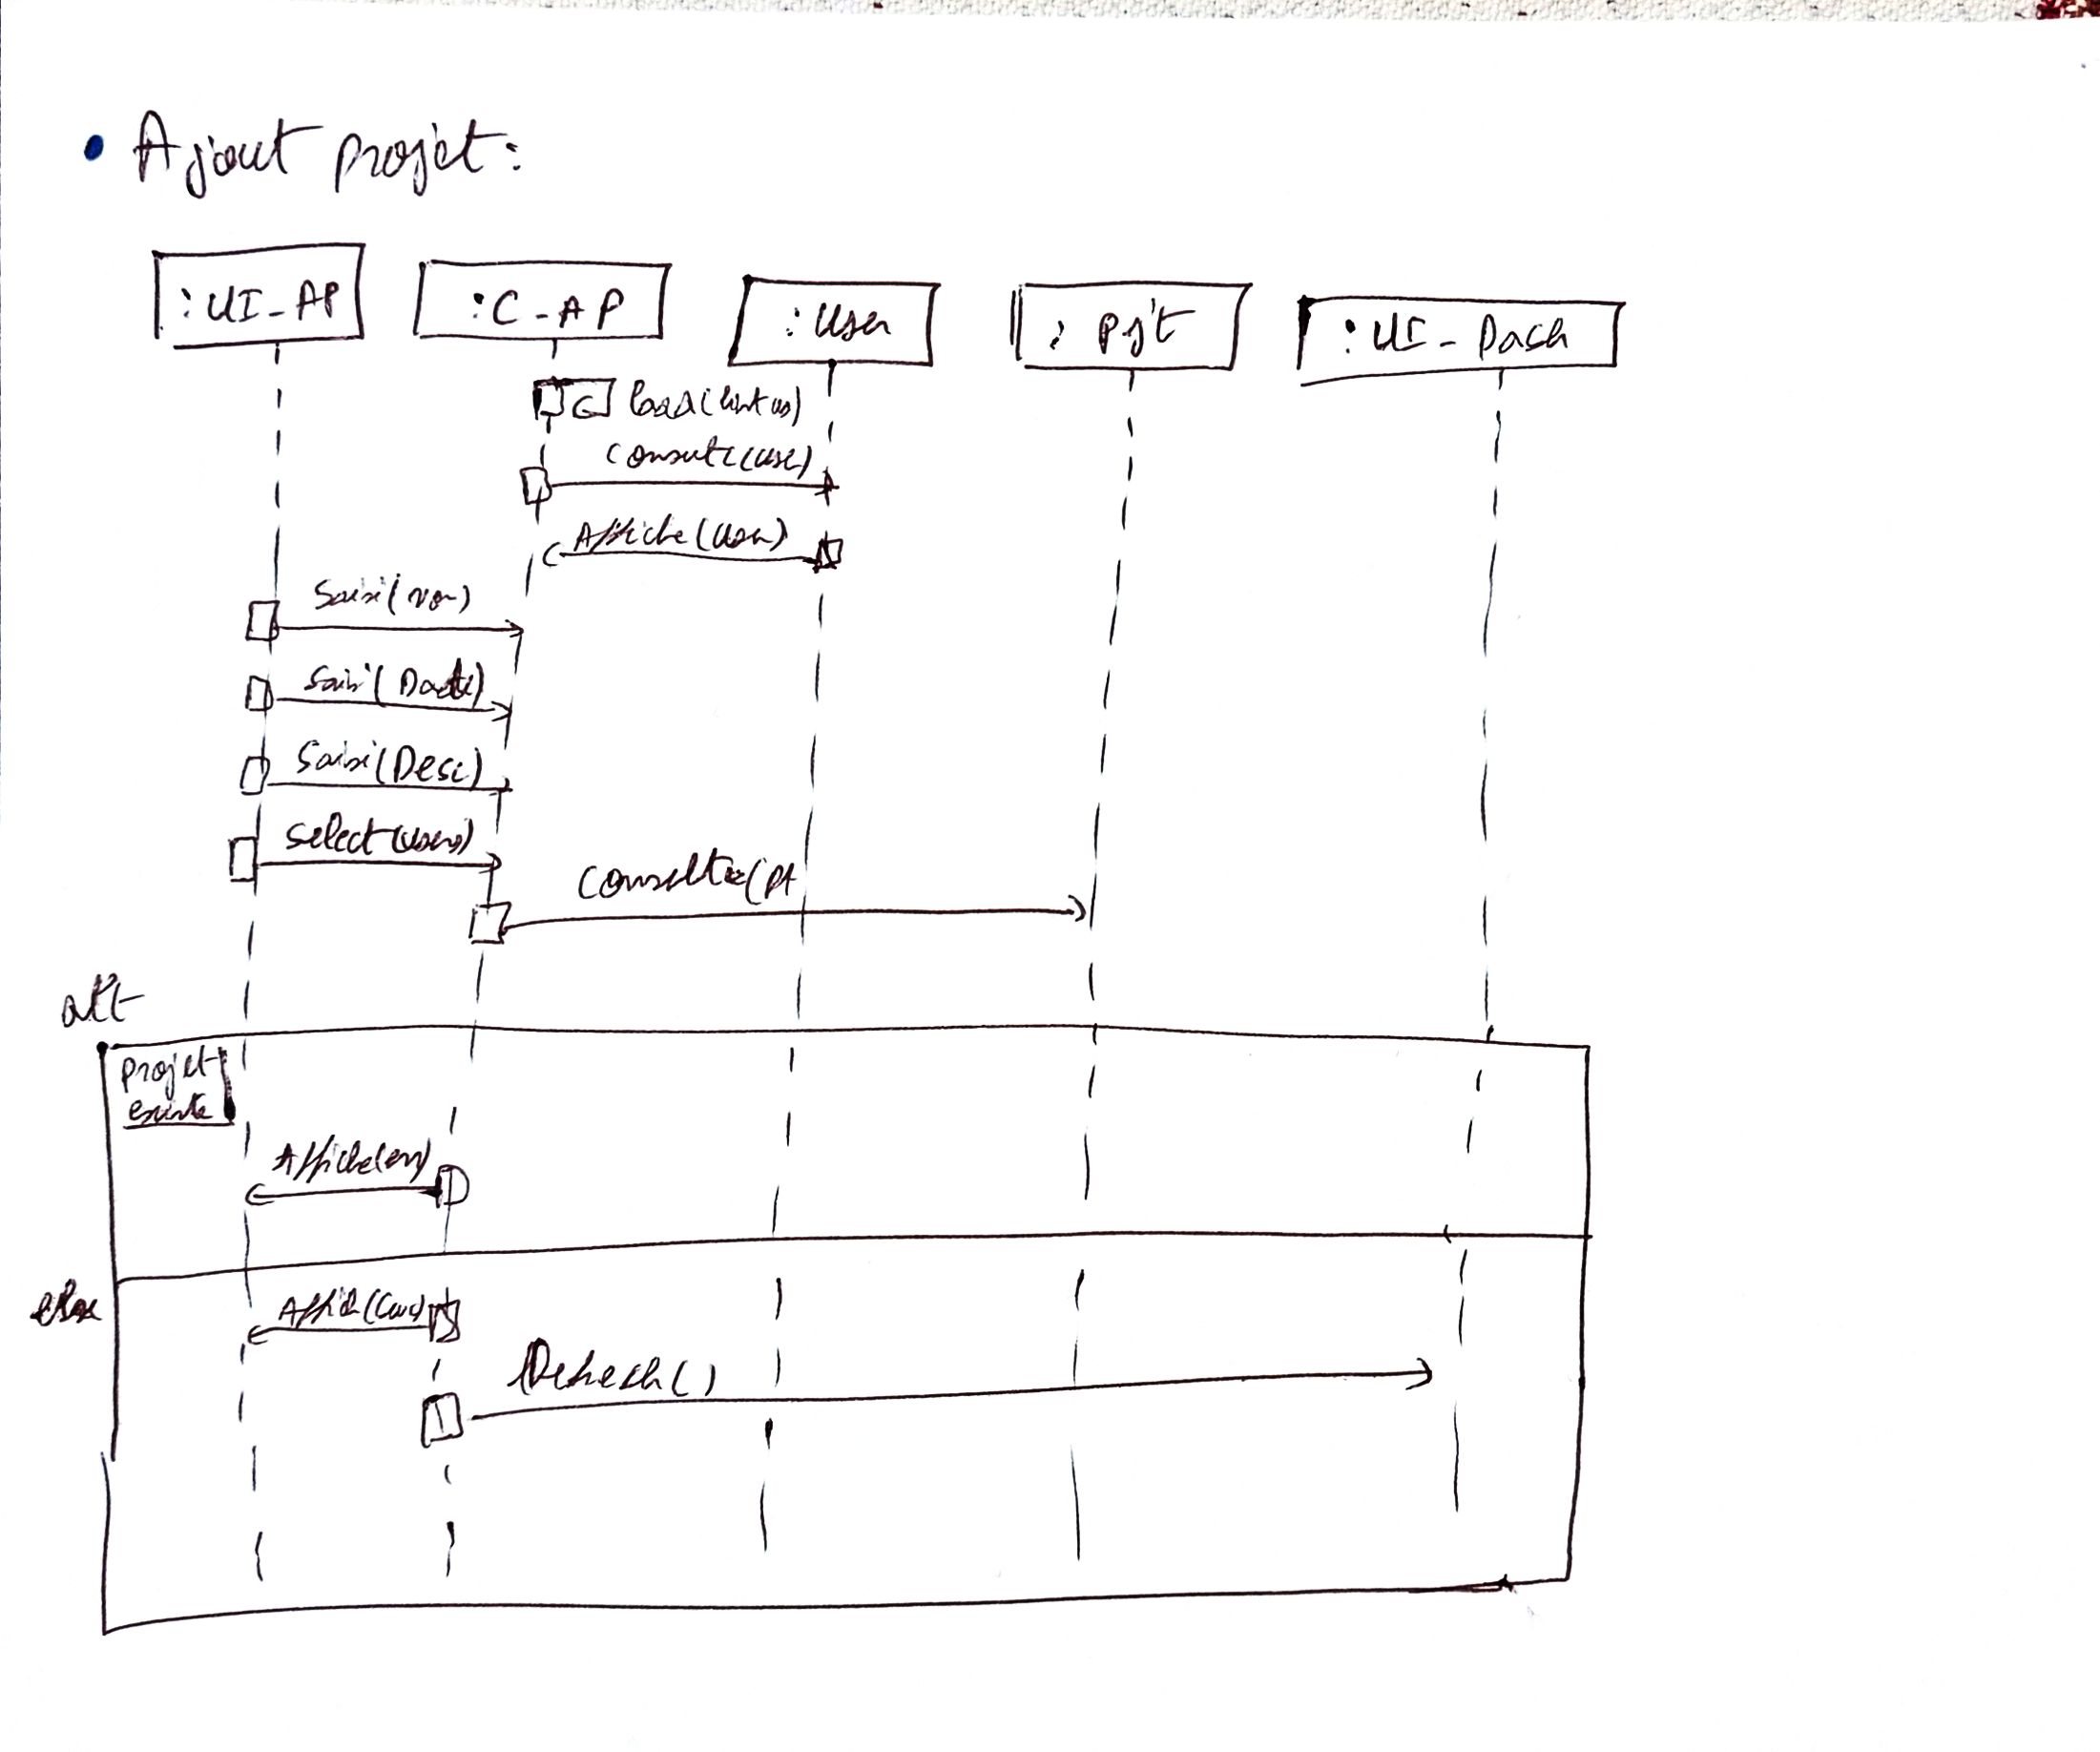 • Ajout projet:
:UI_AP
:C_AP
:User
: Pjt
:UI_Dash
Consulte(use)
Affiche(User)
Saisi(nom)
Saisi(Date)
Saisi(Desc)
Select(Users)
Consulte(Pt
alt
Projet
existe
Affiche(err)
else